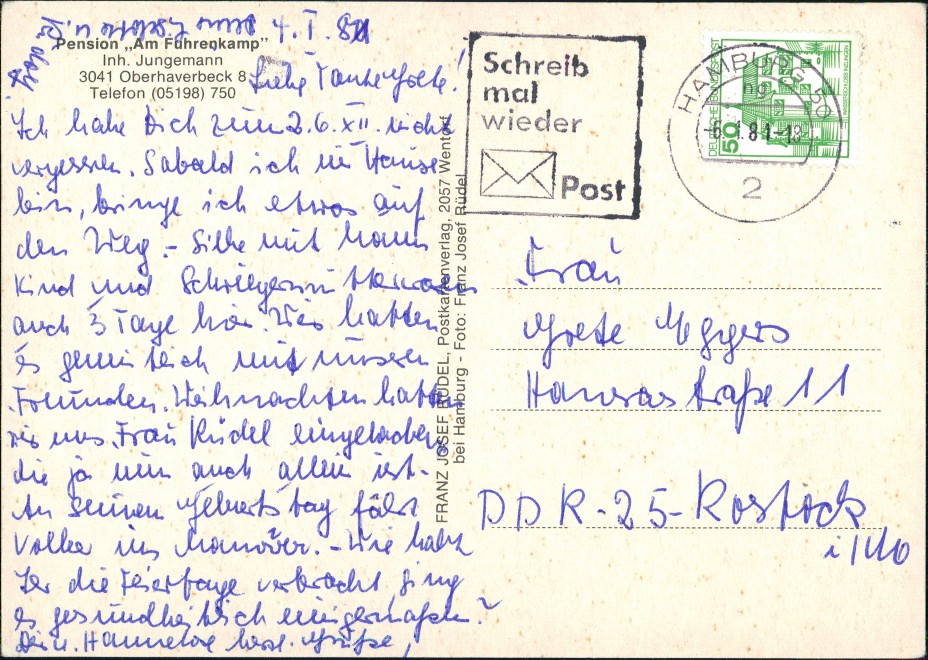 4. I. 81
Pension „Am Führenkamp"
Inh. Jungemann
3041 Oberhaverbeck 8
Telefon (05198) 750
Liebe Tante Grete!
Ich habe Dich zum 26. XII. nicht
vergessen. Sobald ich im Hause
bin, bringe ich etwas auf
den Weg. - Silke mit Mann
Kind und Schwiegerin
auch 3 Tage hier. Wir hatten
es gemütlich mit unseren
Freunden. Weihnachten hatten
wir uns Frau Rüdel eingeladen,
die ja nun auch allein ist.
An seinem Geburtstag fährt
Volker ins Manöver. - Wie habt
Ihr die Feiertage verbracht ging
es gesundheitlich einigermaßen?
Dein. Hannelore herzl. Grüße,
FRANZ JOSEF RÜDEL, Postkartenverlag, 2057 Wentorf
bei Hamburg - Foto: Franz Josef Rüdel
Schreib
mal
wieder
Post
HAMBURG
-6. 1.81-18
2
50
DEUTSCHE BUNDESPOST
Frau
Grete Eggers
Hansastraße 11
DDR-25-Rostock